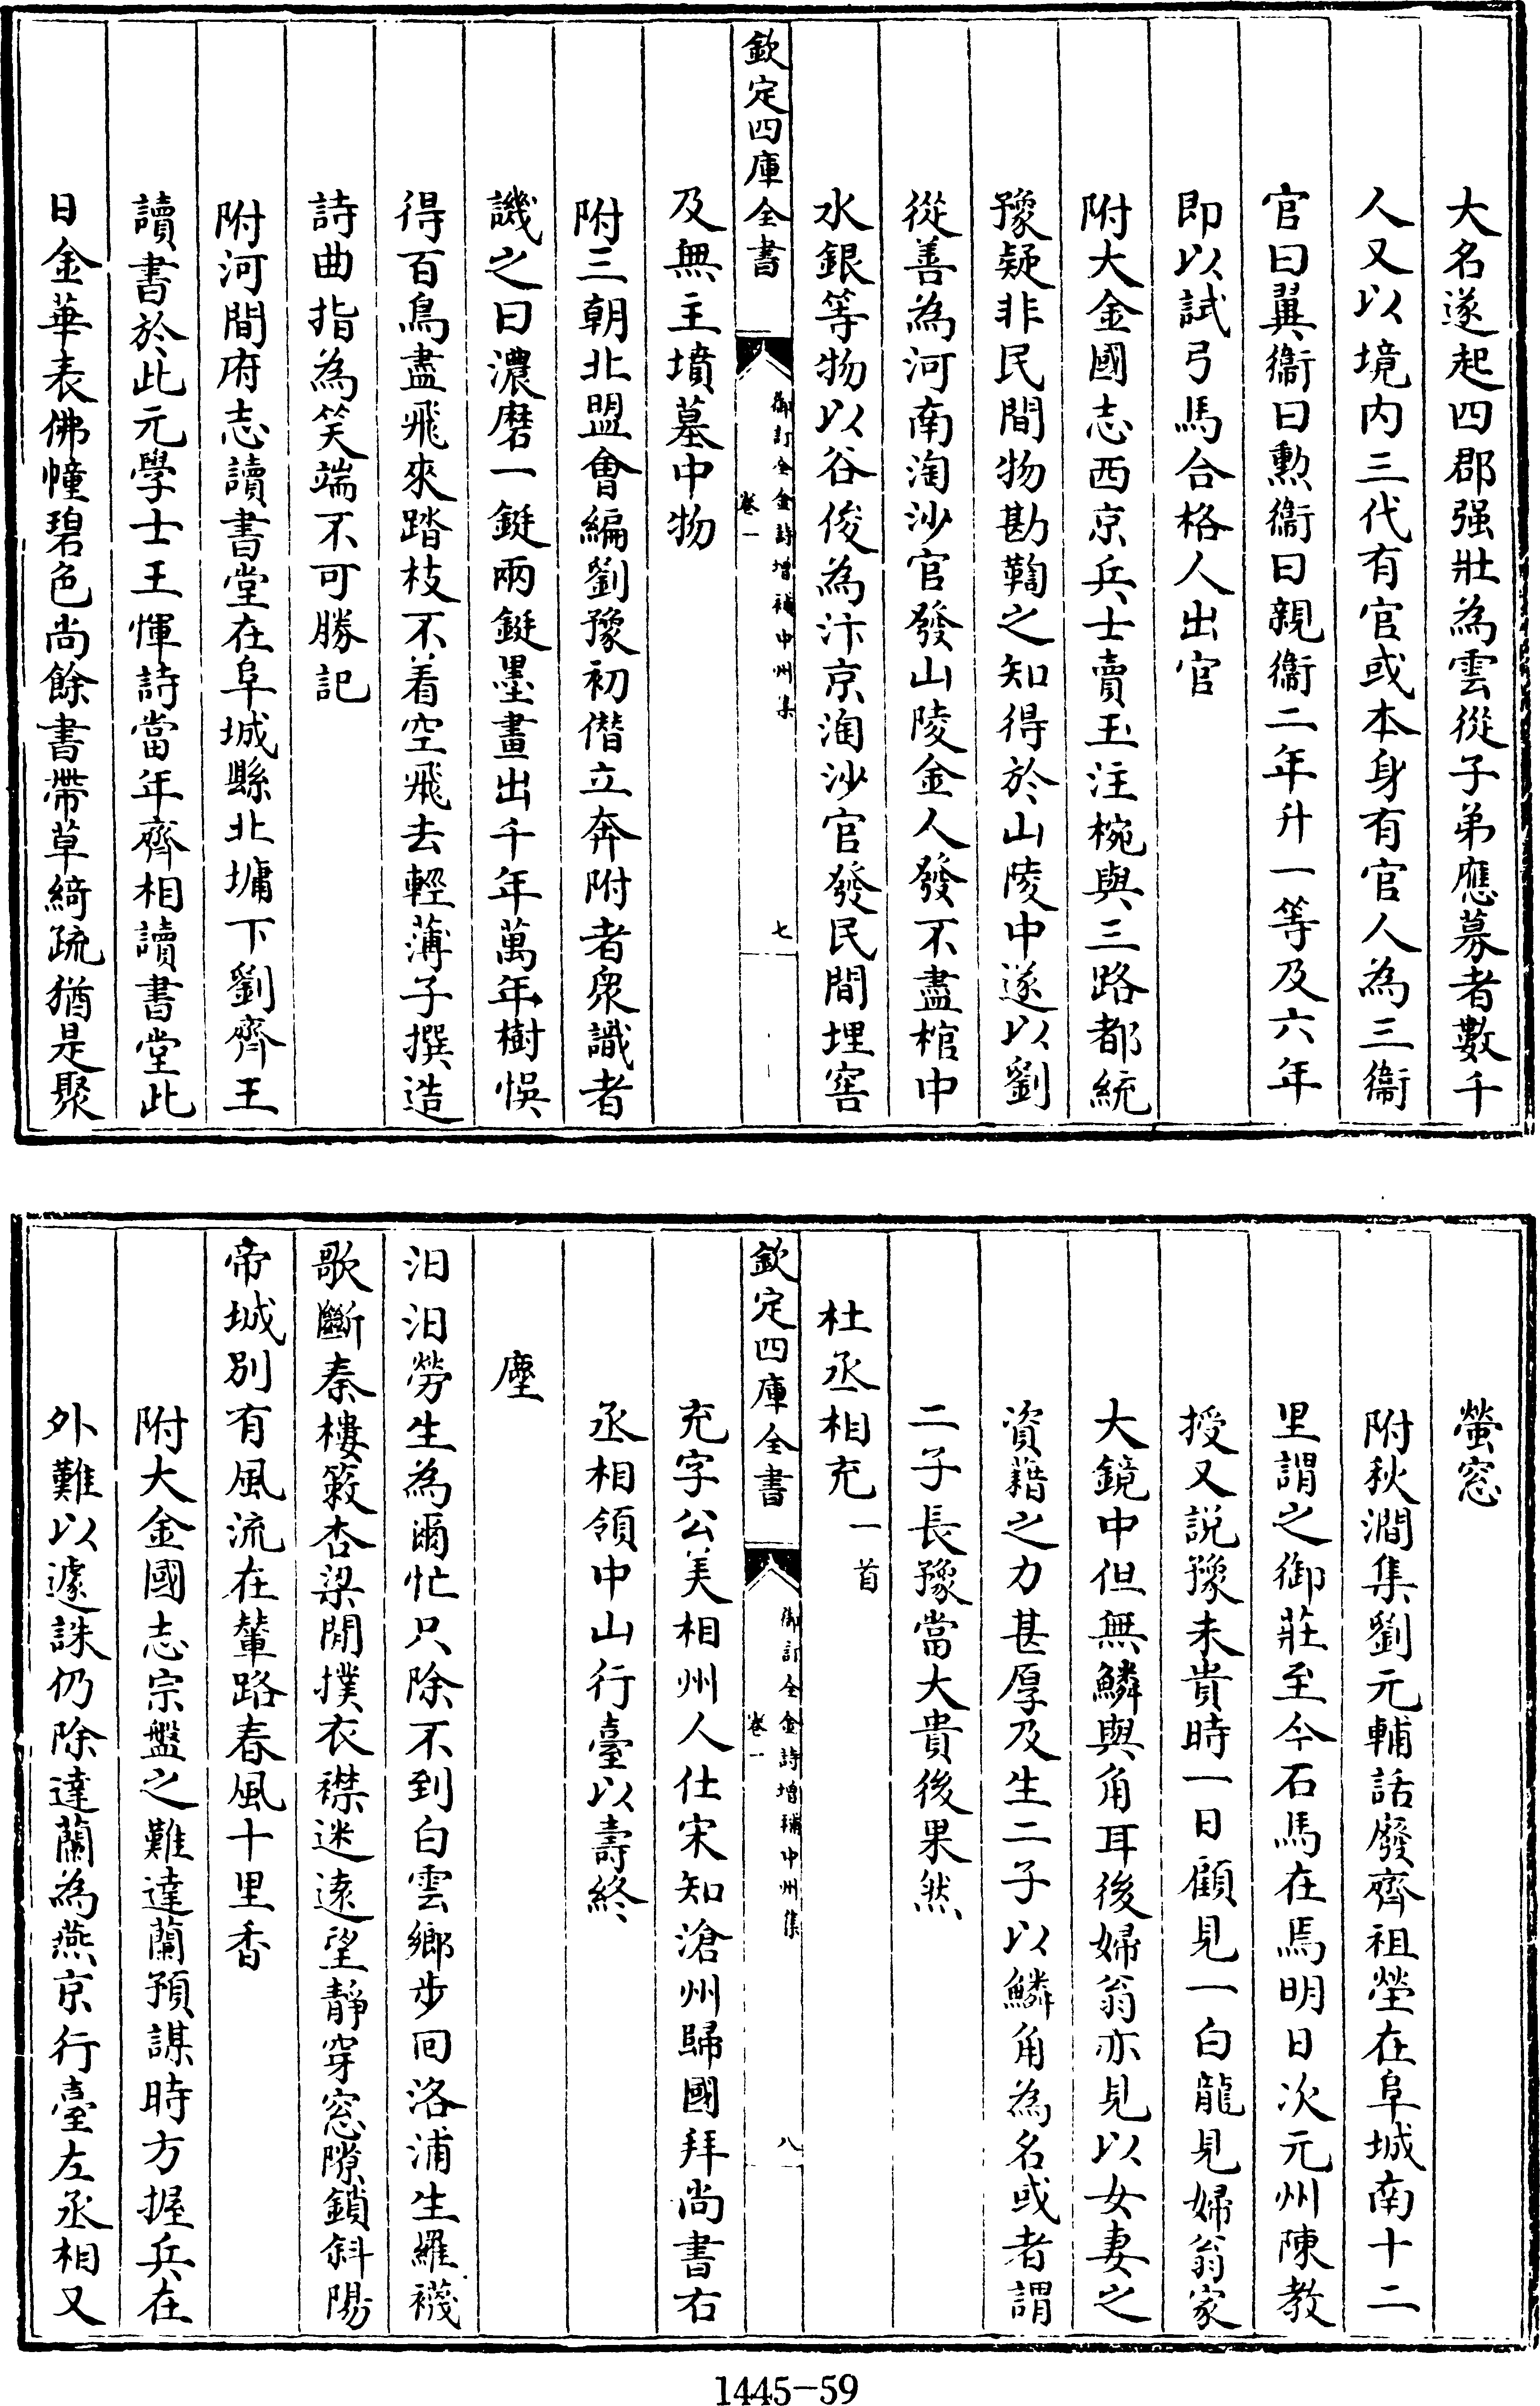 大名遂起四郡强壯為雲從子弟應募者數千
人又以境内三代有官或本身有官人為三衞
官曰翼衞曰勲衞曰親衞二年升一等及六年
即以試弓馬合格人出官
附大金國志西京兵士賣玉注椀與三路都統
豫疑非民間物勘鞫之知得於山陵中遂以劉
從善為河南淘沙官發山陵金人發不盡棺中
水銀等物以谷俊為汴京淘沙官發民間埋窖
欽定四庫全書
御訂全金詩增補中州集
卷一
七
及無主墳墓中物
附三朝北盟會編劉豫初僭立奔附者衆識者
譏之曰濃磨一鋌兩鋌墨畫出千年萬年樹悞
得百鳥盡飛來踏枝不着空飛去輕薄子撰造
詩曲指為笑端不可勝記
附河間府志讀書堂在阜城縣北墉下劉齊王
讀書於此元學士王惲詩當年齊相讀書堂此
日金華表佛幢碧色尚餘書帶草綺疏猶是聚
螢窓
附秋澗集劉元輔話廢齊祖塋在阜城南十二
里謂之御莊至今石馬在焉明日次元州陳教
授又説豫未貴時一日顧見一白龍見婦翁家
大鏡中但無鱗與角耳後婦翁亦見以女妻之
資藉之力甚厚及生二子以鱗角為名或者謂
二子長豫當大貴後果然
杜丞相充一首
欽定四庫全書
御訂全金詩增補中州集
卷一
八
充字公美相州人仕宋知滄州歸國拜尚書右
丞相領中山行臺以壽終
塵
汩汩勞生為爾忙只除不到白雲鄉步回洛浦生羅襪
歌斷秦樓簌杏梁閒撲衣襟迷遠望靜穿窓隙鎖斜陽
帝城别有風流在輦路春風十里香
附大金國志宗盤之難達蘭預謀時方握兵在
外難以遽誅仍除達蘭為燕京行臺左丞相又
1445-59